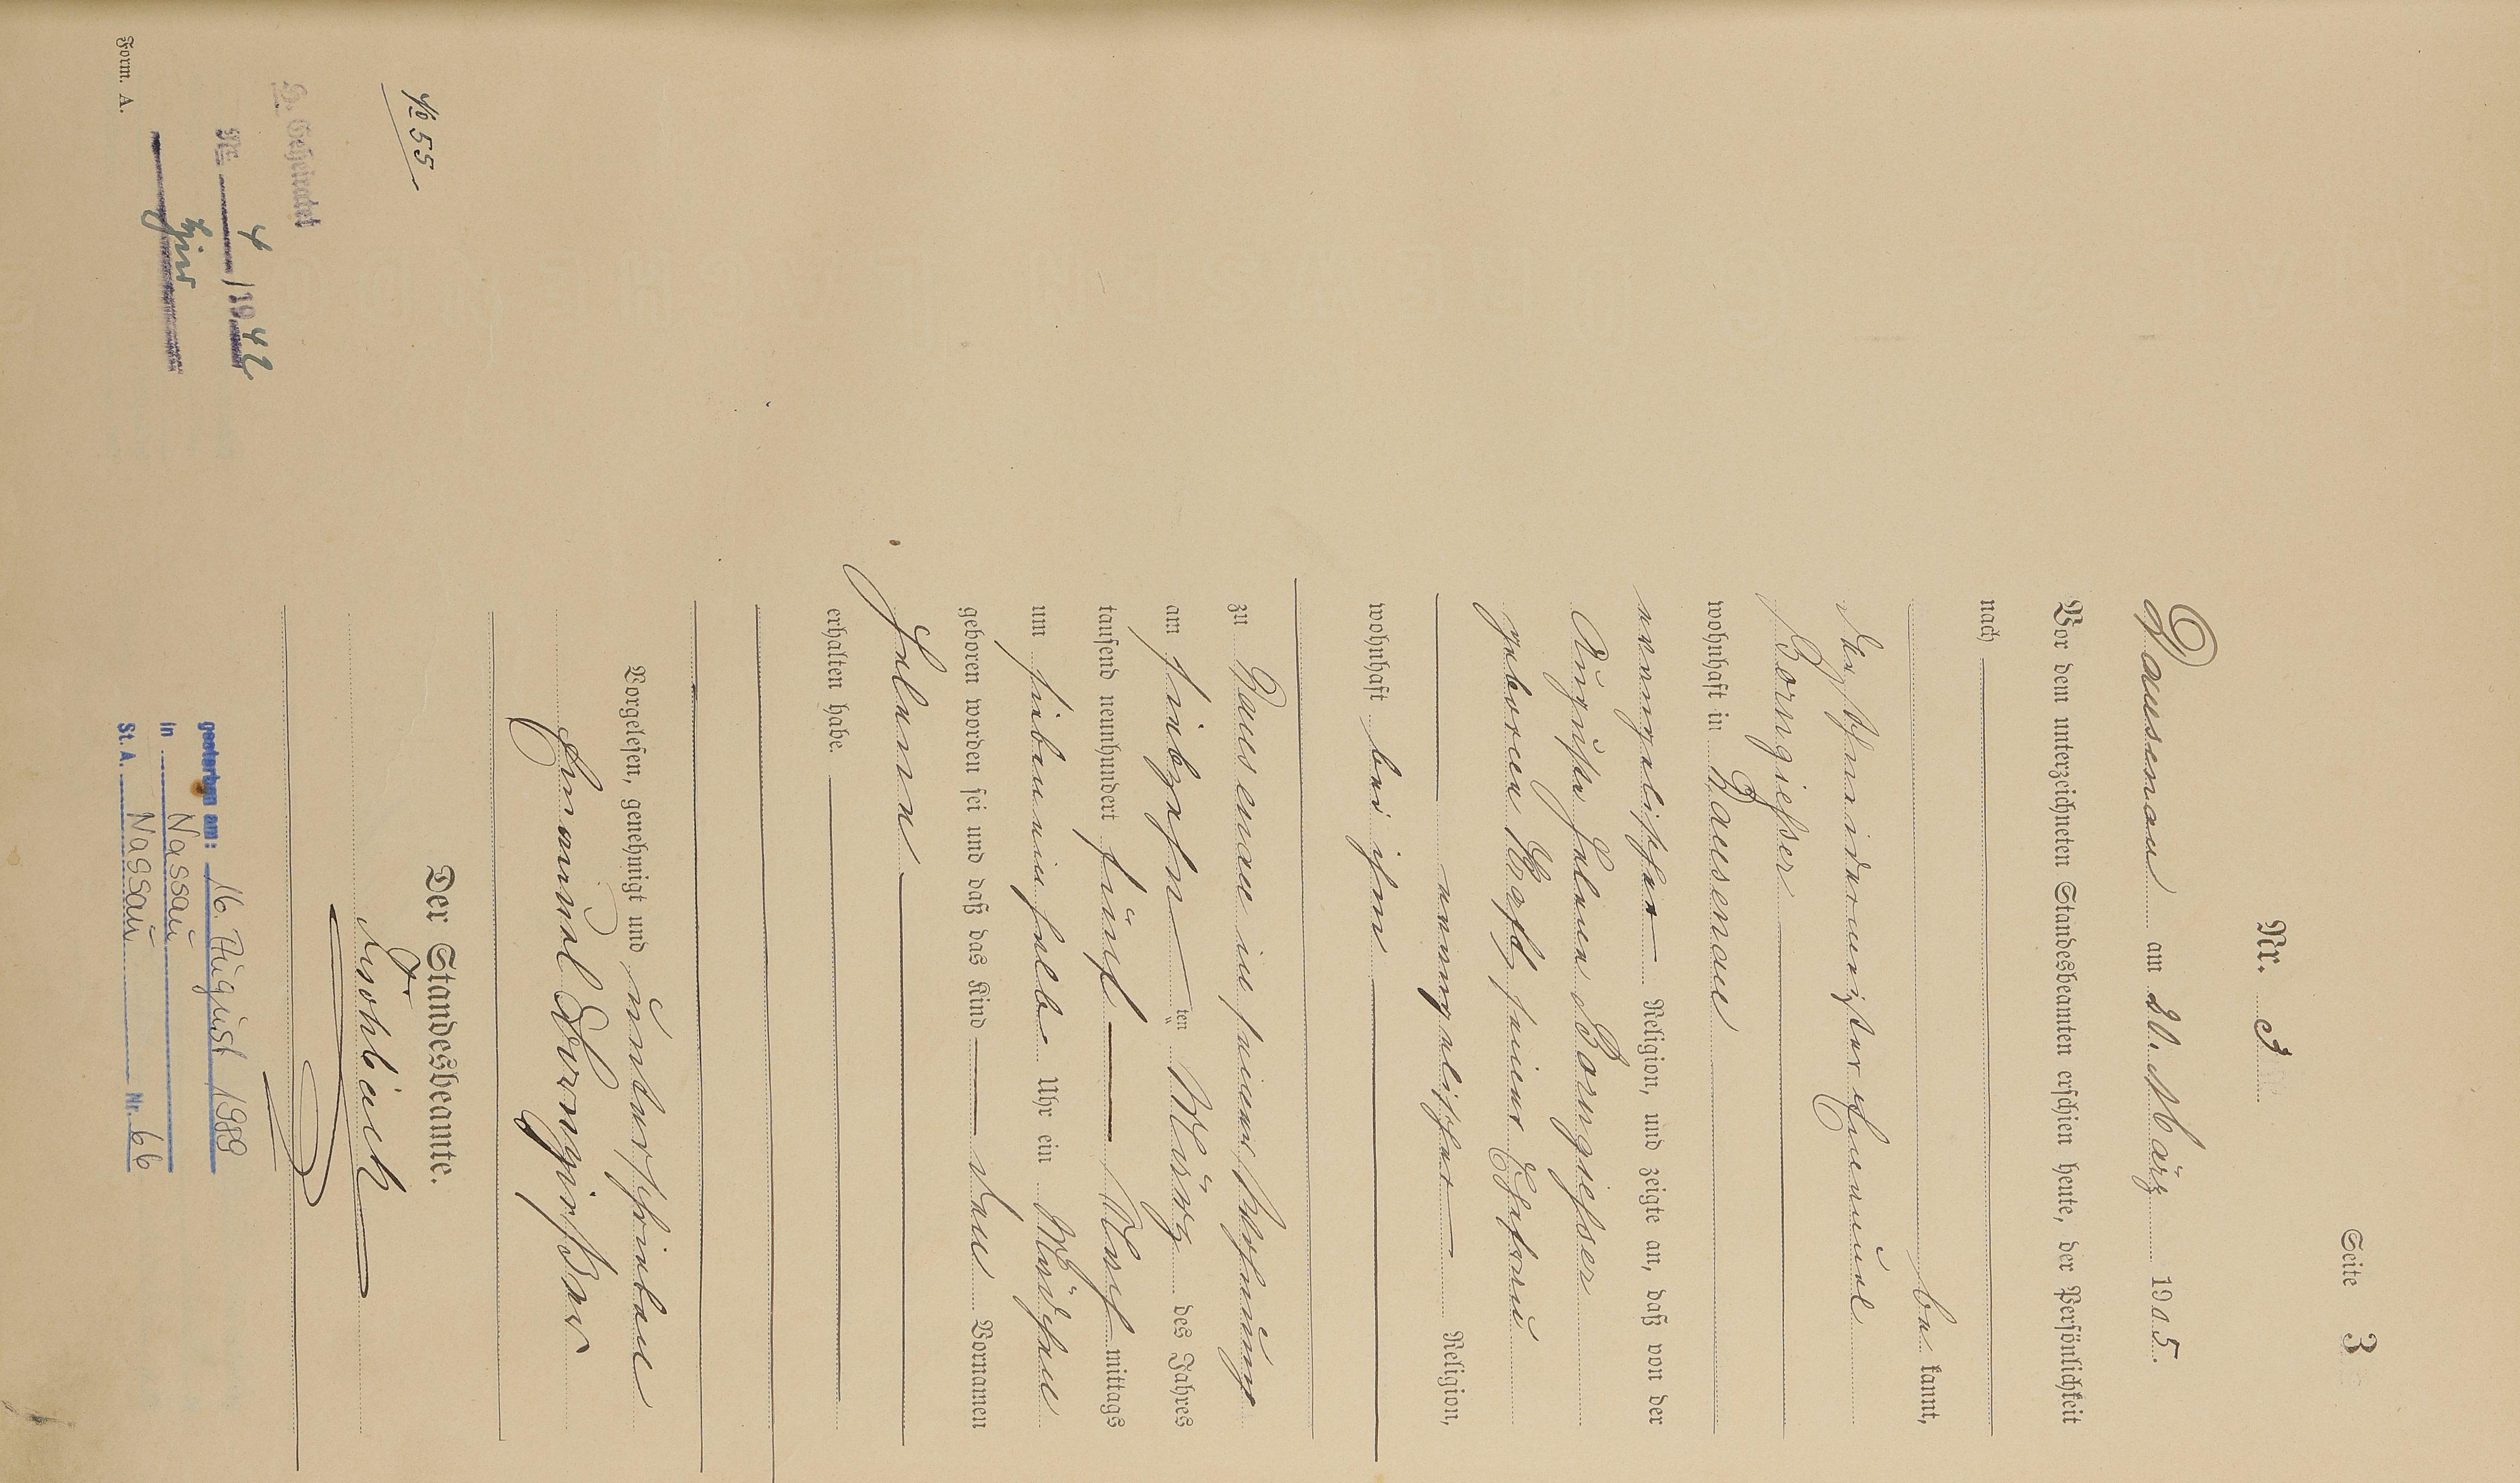 Seite 3
Nr. 3
Dausenau am 20. März 1905.
Vor dem unterzeichneten Standesbeamten erschien heute, der Persönlichkeit
nach
be kannt,
der Schneidermeister Emanuel
Borngießer
wohnhaft in Dausenau
evangelischer Religion, und zeigte an, daß von der
Auguste Helene Borngießer
geborenen Kraft, seiner Ehefrau
evangelischer Religion,
wohnhaft bei ihm
zu Dausenau in seiner Wohnung
am siebzehnten März des Jahres
tausend neunhundert fünf Nach mittags
um sieben ein halb Uhr ein Mädchen
geboren worden sei und daß das Kind den Vornamen
Helene
erhalten habe.
Vorgelesen, genehmigt und unterschrieben
Emanuel Borngießer
Der Standesbeamte.
№ 55
2. Geheiratet
Nr. 4 / 1942
hier
Form. A.
gestorben am: 16. August 1989
in Nassau
St. A. Nassau Nr. 66